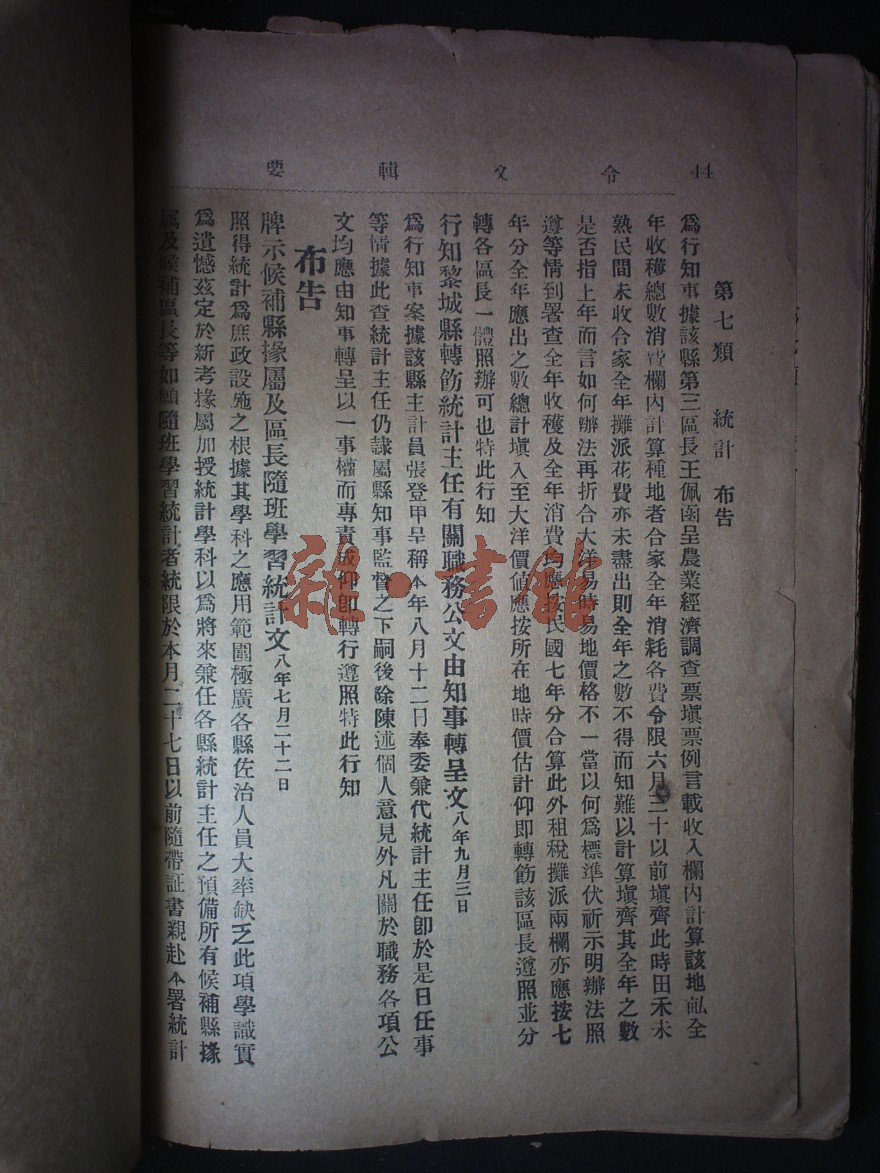 44 令文輯要
第七類 統計 布告
爲行知事據該縣第三區長王佩函呈農業經濟調查票塡票例言載收入欄內計算該地畝全
年收穫總數消費欄內計算種地者合家全年消耗各費令限六月三十以前塡齊此時田禾未
熟民間未收合家全年攤派花費亦未盡出則全年之數不得而知難以計算塡齊其全年之數
是否指上年而言如何辦法再折合大洋易時易地價格不一當以何爲標準伏祈示明辦法照
遵等情到署查全年收穫及全年消費均應按民國七年分合算此外租稅攤派兩欄亦應按七
年分全年應出之數總計塡入至大洋價値應按所在地時價估計仰即轉飭該區長遵照並分
轉各區長一體照辦可也特此行知
行知黎城縣轉飭統計主任有關職務公文由知事轉呈文八年九月三日
爲行知事案據該縣主計員張登甲呈稱本年八月十二日奉委兼代統計主任卽於是日任事
等情據此查統計主任仍隷屬縣知事監督之下嗣後除陳述個人意見外凡關於職務各項公
文均應由知事轉呈以一事權而專責成仰卽轉行遵照特此行知
布告
牌示候補縣掾屬及區長隨班學習統計文八年七月二十二日
照得統計爲庶政設施之根據其學科之應用範圍極廣各縣佐治人員大率缺乏此項學識實
爲遺憾茲定於新考掾屬加授統計學科以爲將來兼任各縣統計主任之預備所有候補縣掾
屬及候補區長等如願隨班學習統計者統限於本月二十七日以前隨帶証書親赴本署統計
雜·書館